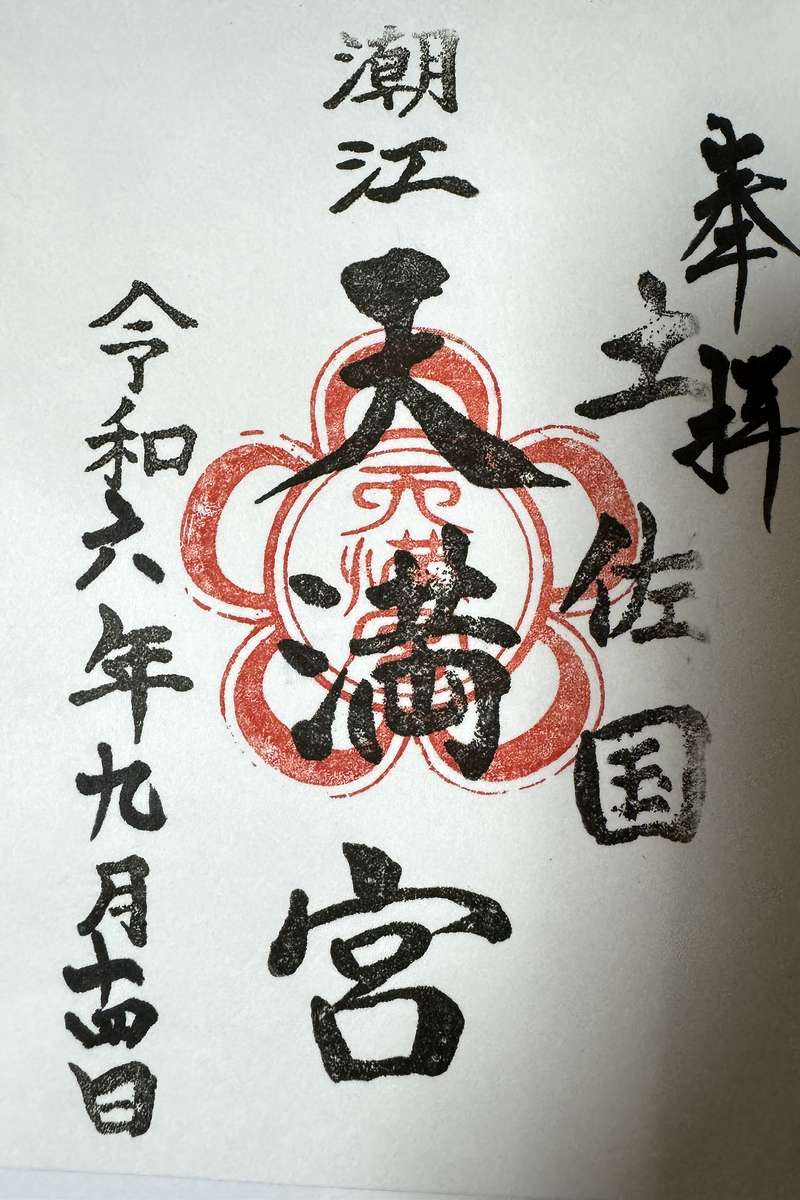 奉拝
土佐国
潮江
天満宮
天満宮
令和六年九月十四日